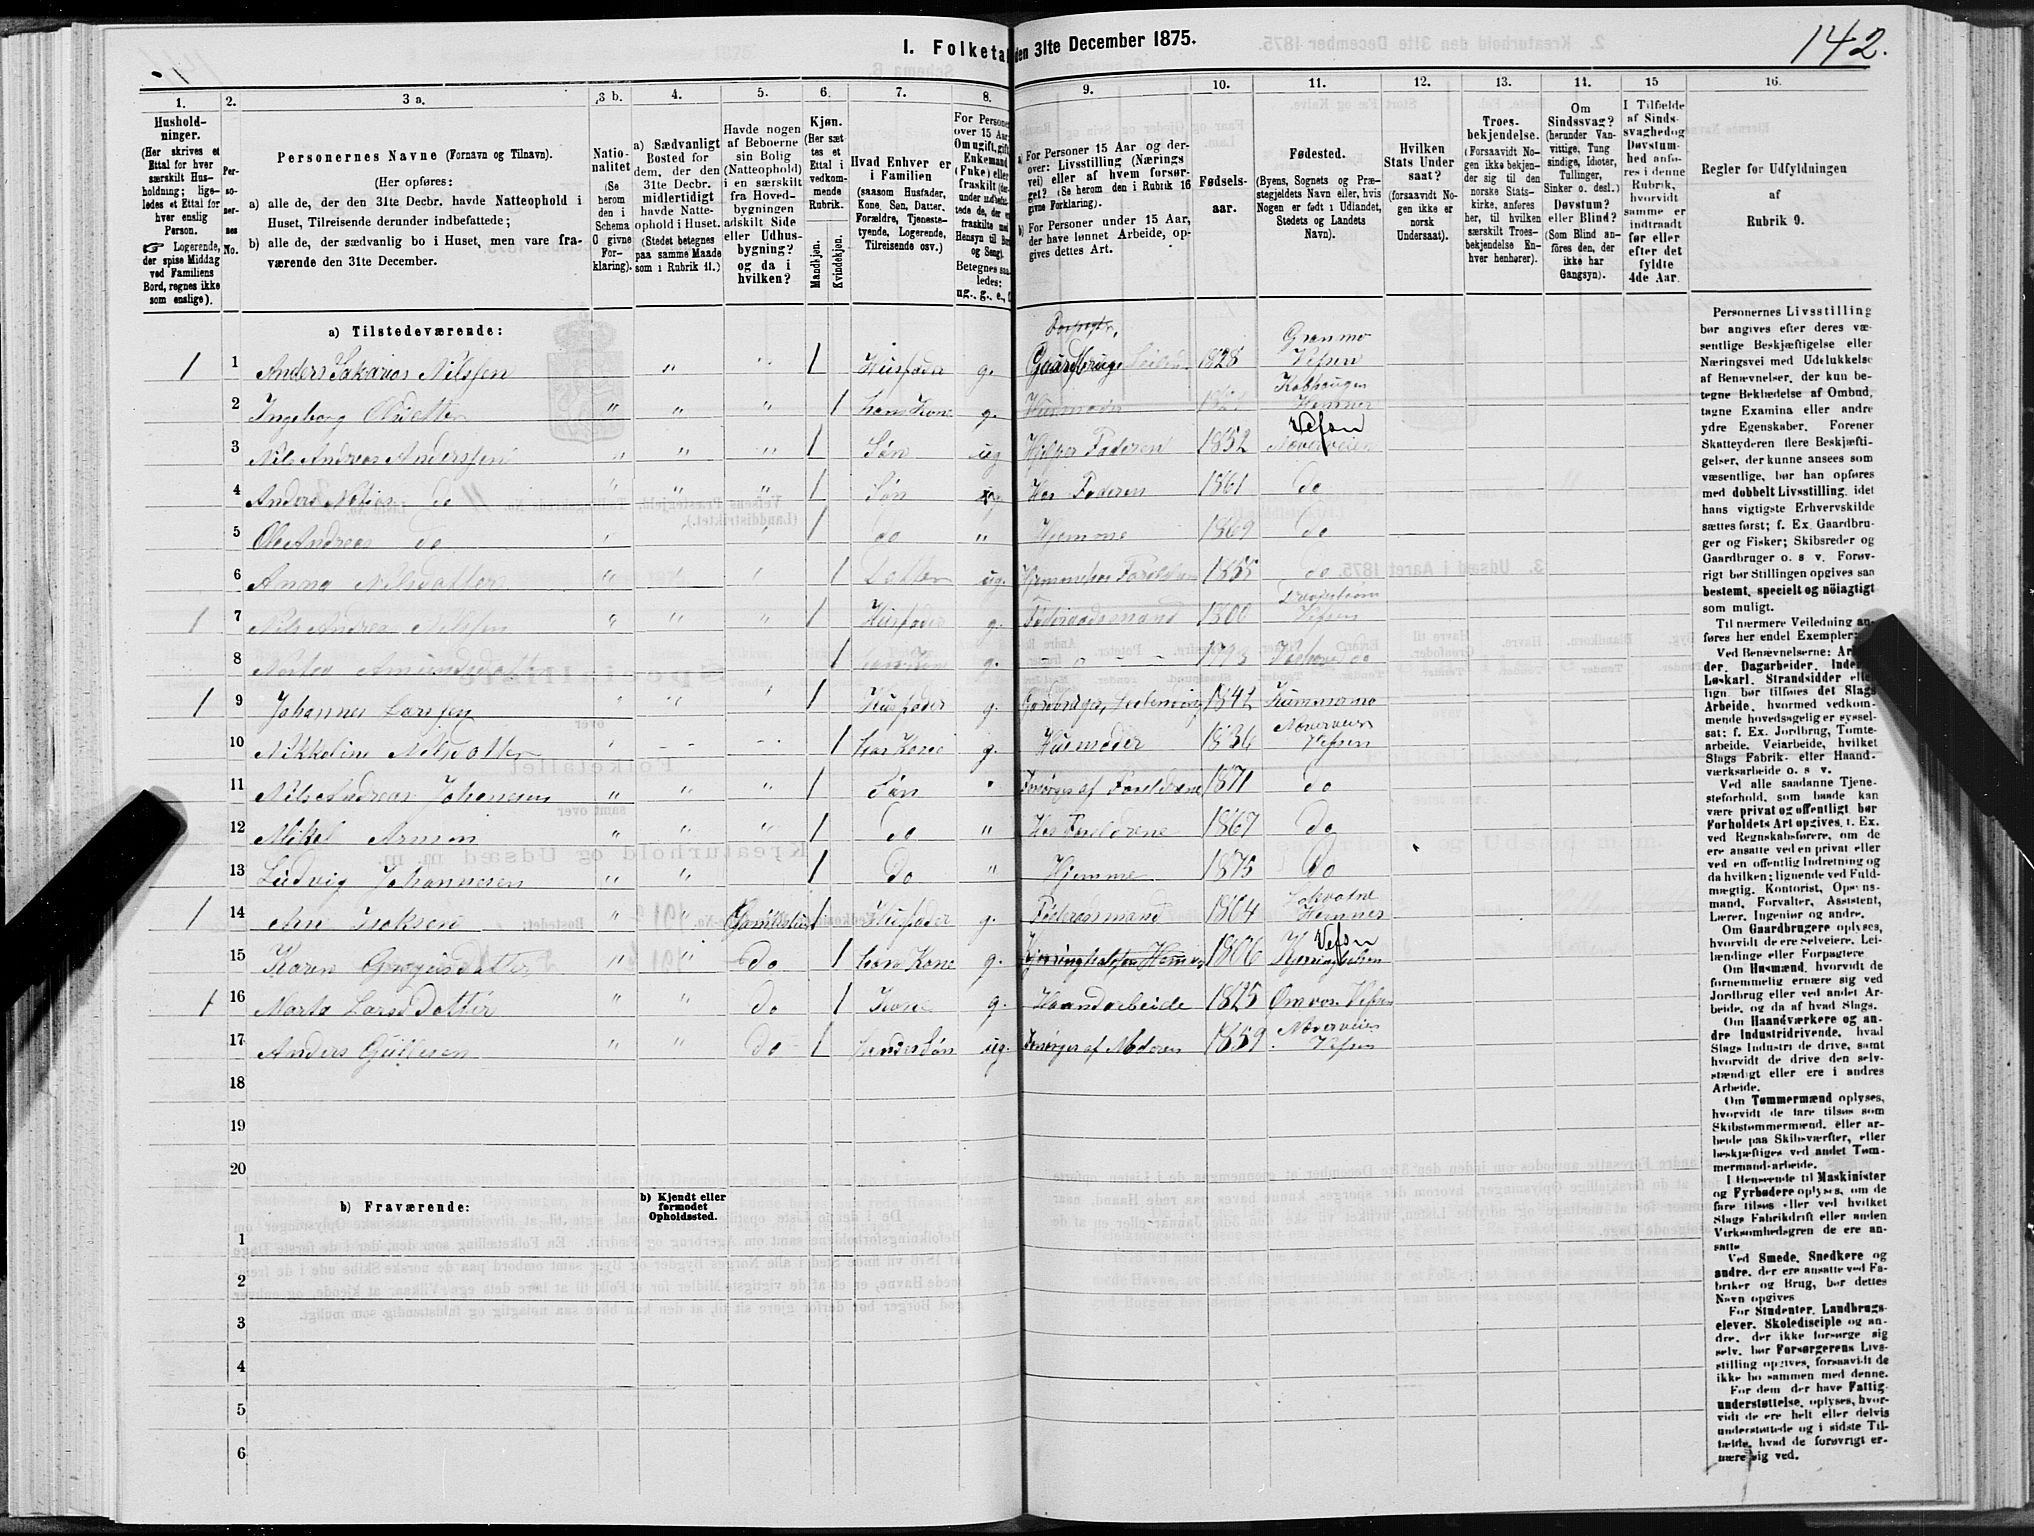 142.
I. Folketa
den 31te December 1875.
1. 2. 3 a. 3 b. 4. 5. 6. 7. 8. 9. 10. 11. 12. 13. 14. 15 16.
Hushold-
ninger.
(Her skrives et
Ettal for hver
særskilt Hus-
holdning; lige-
ledes et Ettal for
hver enslig
Person.
☞ Logerende,
der spise Middag
ved Familiens
Bord, regnes ikke
som enslige).
Per-
so-
ner-
nes
No.
Personernes Navne (Fornavn og Tilnavn).
(Her opføres:
a) alle de, der den 31te Decbr. havde Natteophold i
Huset, Tilreisende derunder indbefattede;
b) alle de, der sædvanlig bo i Huset, men vare fra-
værende den 31te December.
Natio-
nalitet
(Se
herom
den i
Schema
O givne
For-
klaring).
a) Sædvanligt
Bosted for
dem, der den
31te Decbr.
midlertidigt
havde Natte-
ophold i Huset.
(Stedet betegnes
paa samme Maade
som i Rubrik 11.)
Havde nogen
af Beboerne
sin Bolig
(Natteophold)
i en særskilt
fra Hoved-
bygningen
adskilt Side
eller Udhus-
bygning?
og da i
hvilken?
Kjøn.
(Her sæt-
tes et
Ettal i
vedkom-
mende
Rubrik.
Mandkjøn.
Kvindekjøn.
Hvad Enhver er
i Familien
(saasom Husfader,
Kone, Søn, Datter.
Forældre, Tjeneste-
tyende, Logerende,
Tilreisende osv.)
For Persone
over 15 Aar
Om ugift, gift
Enkemand
(Enke) eller
fraskilt
Betegnes saa
ledes:
ug., g., e.,
a) For Personer 15 Aar og der-
over: Livsstilling (Nærings
vei) eller af hvem forsør-
get? (Se herom den i Rubrik 16
givne Forklaring).
b) For Personer under 15 Aar,
der have lønnet Arbeide, op-
gives dettes Art.
Fødsels-
aar.
Fødested.
(Byens, Sognets og Præ-
stegjeldets Navn eller, hvis
Nogen er født i Udlandet,
Stedets og Landets
Navn).
Hvilken
Stats Under
saat?
(forsaavidt No-
gen ikke er
norsk
Undersaat).
Troes-
bekjendelse.
(Forsaavidt No-
gen ikke bekjen-
der sig til den
norske Stats-
kirke, anføres
her, til hvilken
særskilt Troes-
bekjendelse En-
hver henhører).
Om
Sindssvag?
(herunder Van-
vittige, Tung
sindige, Idioter,
Tullinger,
Sinker o. desl.)
Døvstum?
eller Blind?
(Som Blind an-
føres den, der
ikke har
Gangsyn).
I Tilfælde
af Sinds-
svaghed og
Døvstum-
hed anfø-
res i denne
Rubrik,
hvorvidt
samme er
indtraadt
før eller
efter det
fyldte
4de Aar.
Regler for Udfyldningen
af
Rubrik 9.
a) Tilstedeværende:
1 1 Anders Sakarias Nilssen " " 1 Husfader g. Gaardbruger 1828 Granmo Vefsen
2 Ingeborg Olsdatter " " " 1 hans Kone g. Husmoder Kobhaugen Hemnes
3 Nils Andreas Anderssen " " " 1 Søn ug Hjelper Faderen 1852 Vefsn Næverveien
4 Anders do " " " 1 Søn Hos Faderen 1861 do
5 Ole Andreas do " 1 do " Hjemme 1869 do
6 Anna Nilsdatter " " 1 Datter ug. 1855 do
1 7 Nils Andreas Nilssen " " " 1 Husfader g. Føderaadsmand 1800 Vefsen
8 Amundsdatter 1 hans Kone g. - " - do
1 9 Johannes Larssen " " " 1 Husfader g. Gaardbruger, 1842 Kummermo
10 Nikoline Nilsdatter 1 hans Kone g. Husmoder 1836 Næverveien Vefsen
11 Nils Andreas Johannesen " " " 1 Søn " Forsørges af Forældrene 1871 do
12 Mikal Armin " " " 1 do " Hos Forældrene 1867 do
13 Ludvig Johannesen " " 1 do " Hjemme 1875 do
1 14 Isaksen " " 1 Husfader g. Føderaadsmand 1804 Hemnes
15 Karen Gregersdatter " " do 1 hans Kone g. 1806 Vefsn
1 16 Marta Larsdatter " " do 1 Kone g. Haandarbeide 1825 Omvos. Vefsen
17 Anders Gullesen " " do 1 hendes Søn ug. Forsørges af Moderen 1859 Næverveien Vefsen
18
19
20
b) Fraværende:
b) Kjendt eller
formodet
Opholdssted.
1
2
3
4
5
6
Personernes Livsstilling
bør angives efter deres væ-
sentlige Beskjæftigelse eller
Næringsvei med Udelukkelse
af Benævnelser, der kun be-
tegne Beklædelse af Ombud,
tagne Examina eller andre
ydre Egenskaber. Forener
Skatteyderen flere Beskjæfti-
gelser, der kunne ansees som
væsentlige, bør han opføres
med dobbelt Livsstilling, idet
hans vigtigste Erhvervskilde
sættes først; f. Ex. Gaardbru-
ger og Fisker; Skibsreder og
Gaardbruger o. s. v. Forøv-
rigt bør Stillingen opgives saa
bestemt, specielt og nöiagtigt
som muligt.
Til nærmere Veiledning an-
føres her endel Exempler:
Ved Benævnelserne:
der, Dagarbeider,
Løskarl, Strandsidder
lign. bør tilføies det Slags
Arbeide, hvormed vedkom-
mende hovedsagelig er syssel-
sat; f. Ex. Jordbrug, Tomte-
arbeide, Veiarbeide, hvilket
Slags Fabrik- eller Haand-
værksarbeide o. s. v.
Ved alle saadanne Tjene-
steforhold, som baade kan
være privat og offentligt, bør
Forholdets Art opgives, t. Ex.
ved Regnskabsførere, om de
ere ansatte ved en privat eller
ved en offentlig Indretning og
da hvilken; lignende ved Fuld-
mægtig, Kontorist, Opsyns-
mand, Forvalter, Assistent,
Lærer, Ingeniør og andre.
Om Gaardbrugere oplyses,
hvorvidt de ere Selveiere, Lei-
lændinge eller Forpagtere
Om Husmænd, hvorvidt de
fornemmelig ernære sig ved
Jordbrug eller ved andet Ar-
beide, og da af hvad Slags.
Om Haandværkere og an-
dre Industridrivende, hvad
Slags Industri de drive, samt
hvorvidt de drive den selv-
stændigt eller ere i andres
Arbeide.
Om Tømmermænd oplyses,
hvorvidt de fare tilsøs som
Skibstømmermænd, eller ar-
beide paa Skibsværfter, eller
beskjæftiges ved andet Tøm-
mermand-arbeide.
I Henseende til Maskinister
og Fyrbødere oplyses, om de
fare tilsøs eller ved hvilket
Slags Fabrikdrift eller anden
Virksomhedsgren de ere an-
satte
Ved Smede, Snedkere og
andre, der ere ansatte ved Fa-
briker og Brug, bør dettes
Navn opgives
For Studenter, Landbrugs-
elever, Skoledisciple og an-
dre, der ikke forsørge sig
selv, bør Forsørgerens Livs-
stilling opgives, forsaavidt de
ikke bo sammen med denne.
For dem, der have Fattig-
understøttelse, oplyses, hvor-
vidt de ere helt eller delvis
understøttede og i sidste Til-
fælde, hvad de forøvrigt er-
nære sig ved.